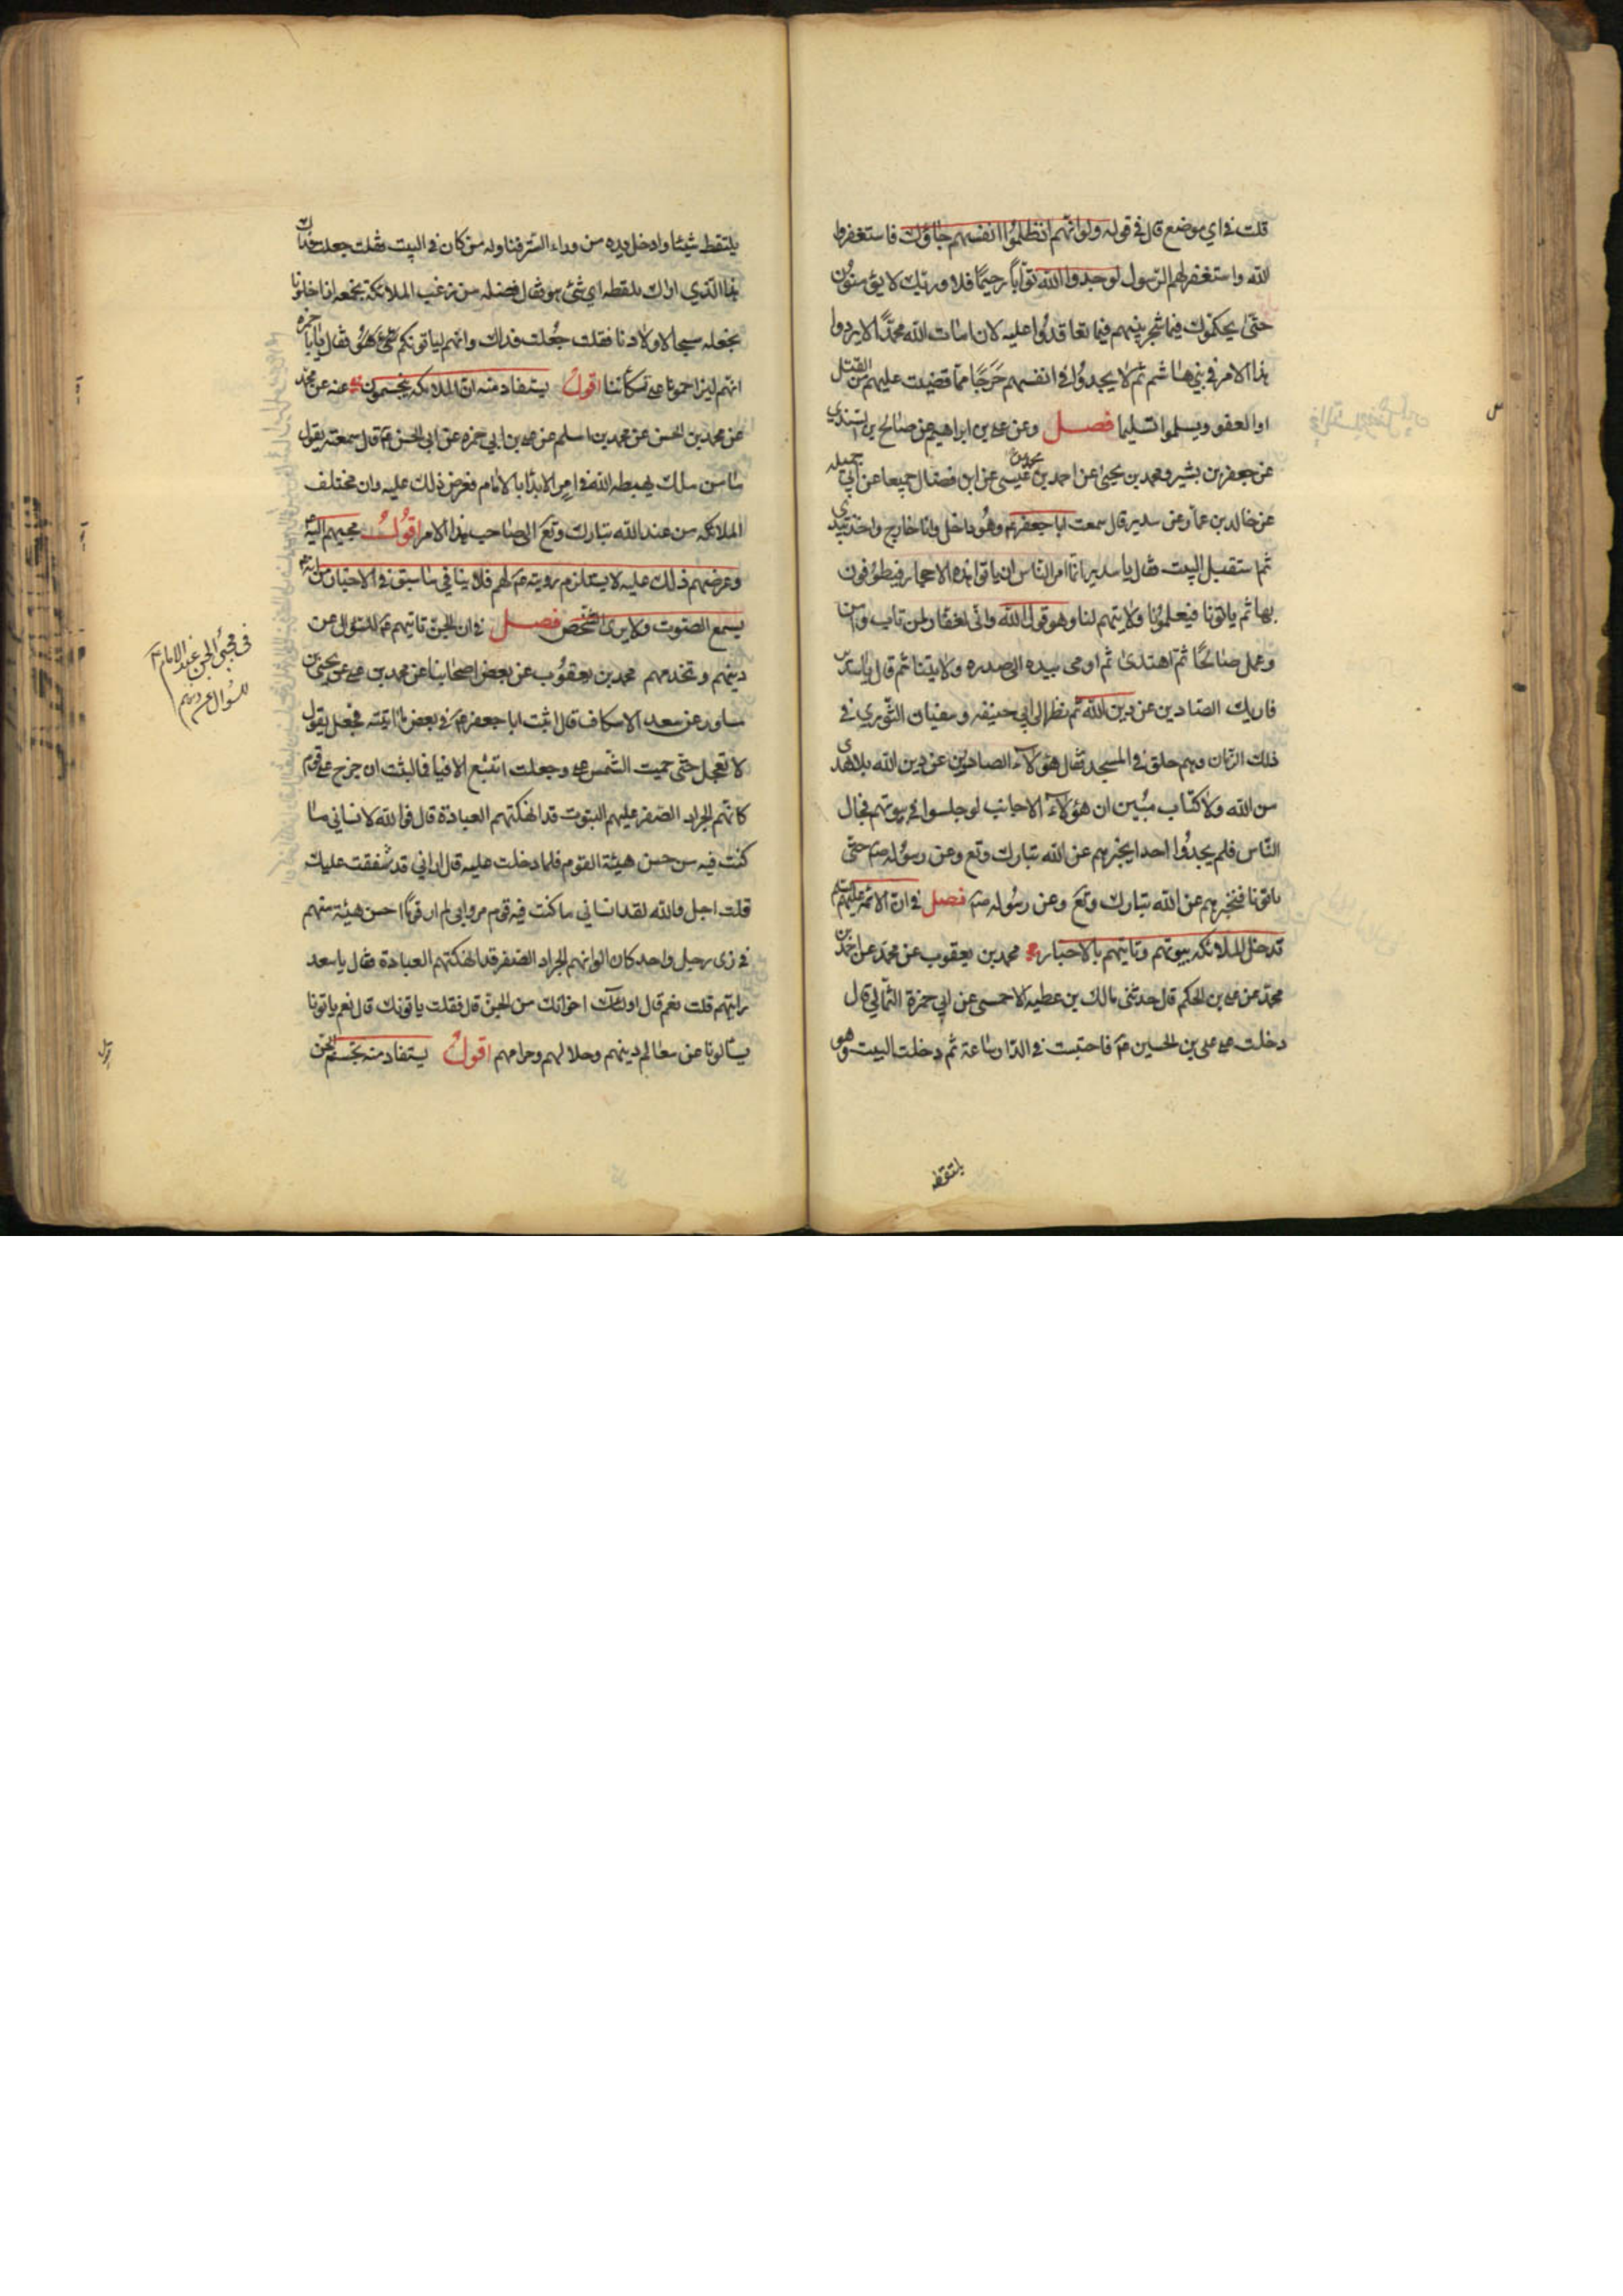 قلت في اي موضع قال في قوله ولو انهم اذ ظلموا انفسهم جاؤك فاستغفروا
الله واستغفر لهم الرسول لوجدوا الله توّابا رحيمًا فلا وربك لا يؤمنون
حتى يحكموك فيما شجر بينهم فيما تعاقدوا عليه لان امات الله محمدًا لا يردوا
هذا الامر في بني هاشم ثم لا يجدوا في انفسهم حَرَجًا مما قضيت عليهم من القتل
او العفو ويسلموا تسليما فصل وعن علي بن ابراهيم عن صالح بن السندي
عن جعفر بن بشير ومحمد بن يحيى عن احمد بن محمد بن عيسى عن ابن فضال جميعا عن ابي جميله
عن خالد بن عمار عن سدير قال سمعت ابا جعفر عم وهو داخل وانا خارج واخذ بيدي
ثم استقبل البيت فقال يا سدير انما امر الناس ان ياتوا هذه الاحجار فيطوفون
بها ثم ياتونا فيعلمونا ولايتهم لنا وهو قول الله واني لغفار لمن تاب وامن
وعمل صالحًا ثم اهتدى ثم اومى بيده الى صدره ولايتنا ثم قال يا سدير
فاريك الصادين عن دين الله ثم نظر الى ابي حنيفه وسفيان الثوري في
ذلك الزمان وهم حلق في المسجد فقال هؤلاء الصادون عن دين الله بلا هدى
من الله ولا كتاب مبين ان هؤلاء الاخابث لو جلسوا في بيوتهم فجال
الناس فلم يجدوا احدا يخبرهم عن الله تبارك وتع وعن رسوله صم حتى
ياتونا فنخبرهم عن الله تبارك وتع وعن رسوله صم فصل في ان الائمة عليهم
تدخل الملائكه بيوتهم وتاتيهم بالاخبار محمد بن يعقوب عن محمد عن احمد بن
محمد عن علي بن الحكم قال حدثني مالك بن عطيه الاحمسي عن ابي حمزة الثمالي قال
دخلت على علي بن الحسين عم فاحتبست في الدار ساعة ثم دخلت البيت وهو
يلتقط
يلتقط شيئا وادخل يده من وراء الستر فناوله من كان في البيت فقلت جعلت فداك
هذا الذي اراك تلتقطه اي شئ هو فقال فضله من زغب الملائكة نجمعه اذا خلونا
نجعله سيحا لاولادنا فقلت جعلت فداك وانهم لياتونكم فقال يا با حمزه
انهم ليزاحمونا على تكأتنا اقول يستفاد منه ان الملائكه يتجسمون عنه عن محمد
عن محمد بن الحسن عن محمد بن اسلم عن علي بن ابي حمزه عن ابي الحسن عم قال سمعته يقول
ما من ملك يهبطه الله في امر الا بدأ بالامام فعرض ذلك عليه وان مختلف
الملائكه من عند الله تبارك وتع الى صاحب هذا الامر اقول مجيئهم اليه
وعرضهم ذلك عليه لا يستلزم رويته عم لهم فلا ينافي ما سبق في الاخبار من انه
يسمع الصوت ولا يرى الشخص فصل في ان الجن تاتيهم عم للسؤال عن
دينهم وتخدمهم محمد بن يعقوب عن بعض اصحابنا عن محمد بن علي عن يحيى بن
مساور عن سعد الاسكاف قال اتيت ابا جعفر عم في بعض ما اتيته فجعل يقول
لا تعجل حتى حميت الشمس علي وجعلت اتتبع الافيا فما لبثت ان خرج علي قوم
كانهم الجراد الصفر عليهم البتوت قد انهكتهم العبادة قال فوالله لانساني ما
كنت فيه من حسن هيئة القوم فلما دخلت عليه قال اراني قد شققت عليك
قلت اجل والله لقد انساني ما كنت فيه قوم مروا بي لم ار قوما احسن هيئة منهم
في زى رجل واحد كان الوانهم الجراد الصفر قد انهكتهم العبادة فقال يا سعد
رايتهم قلت نعم قال اولئك اخوانك من الجن قال فقلت ياتونك قال نعم ياتونا
يسألونا عن معالم دينهم وحلالهم وحرامهم اقول يستفاد منه تجسم الجن
في مجئ الجن عند الامام
للسؤال عن دينهم